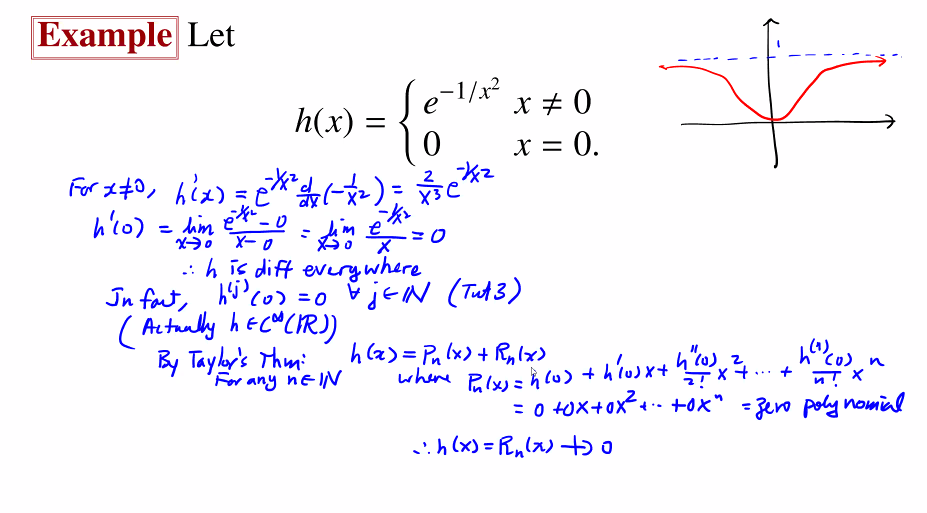 Example Let
1
h(x) = { e^{-1/x^2} x ≠ 0
0 x = 0.
For x≠0, h'(x) = e^{-1/x^2} d/dx(-1/x^2) = 2/x^3 e^{-1/x^2}
h'(0) = lim_{x→0} (e^{-1/x^2} - 0)/(x - 0) = lim_{x→0} e^{-1/x^2}/x = 0
∴ h is diff everywhere
In fact, h^{(j)}(0) = 0 ∀ j∈ℕ (Tut 3)
(Actually h∈C^∞(ℝ))
By Taylor's Thm: h(x) = P_n(x) + R_n(x)
For any n∈ℕ where P_n(x) = h(0) + h'(0)x + h''(0)/2! x^2 + ⋯ + h^{(n)}(0)/n! x^n
= 0 + 0x + 0x^2 + ⋯ + 0x^n = zero polynomial
∴ h(x) = R_n(x) ↛ 0